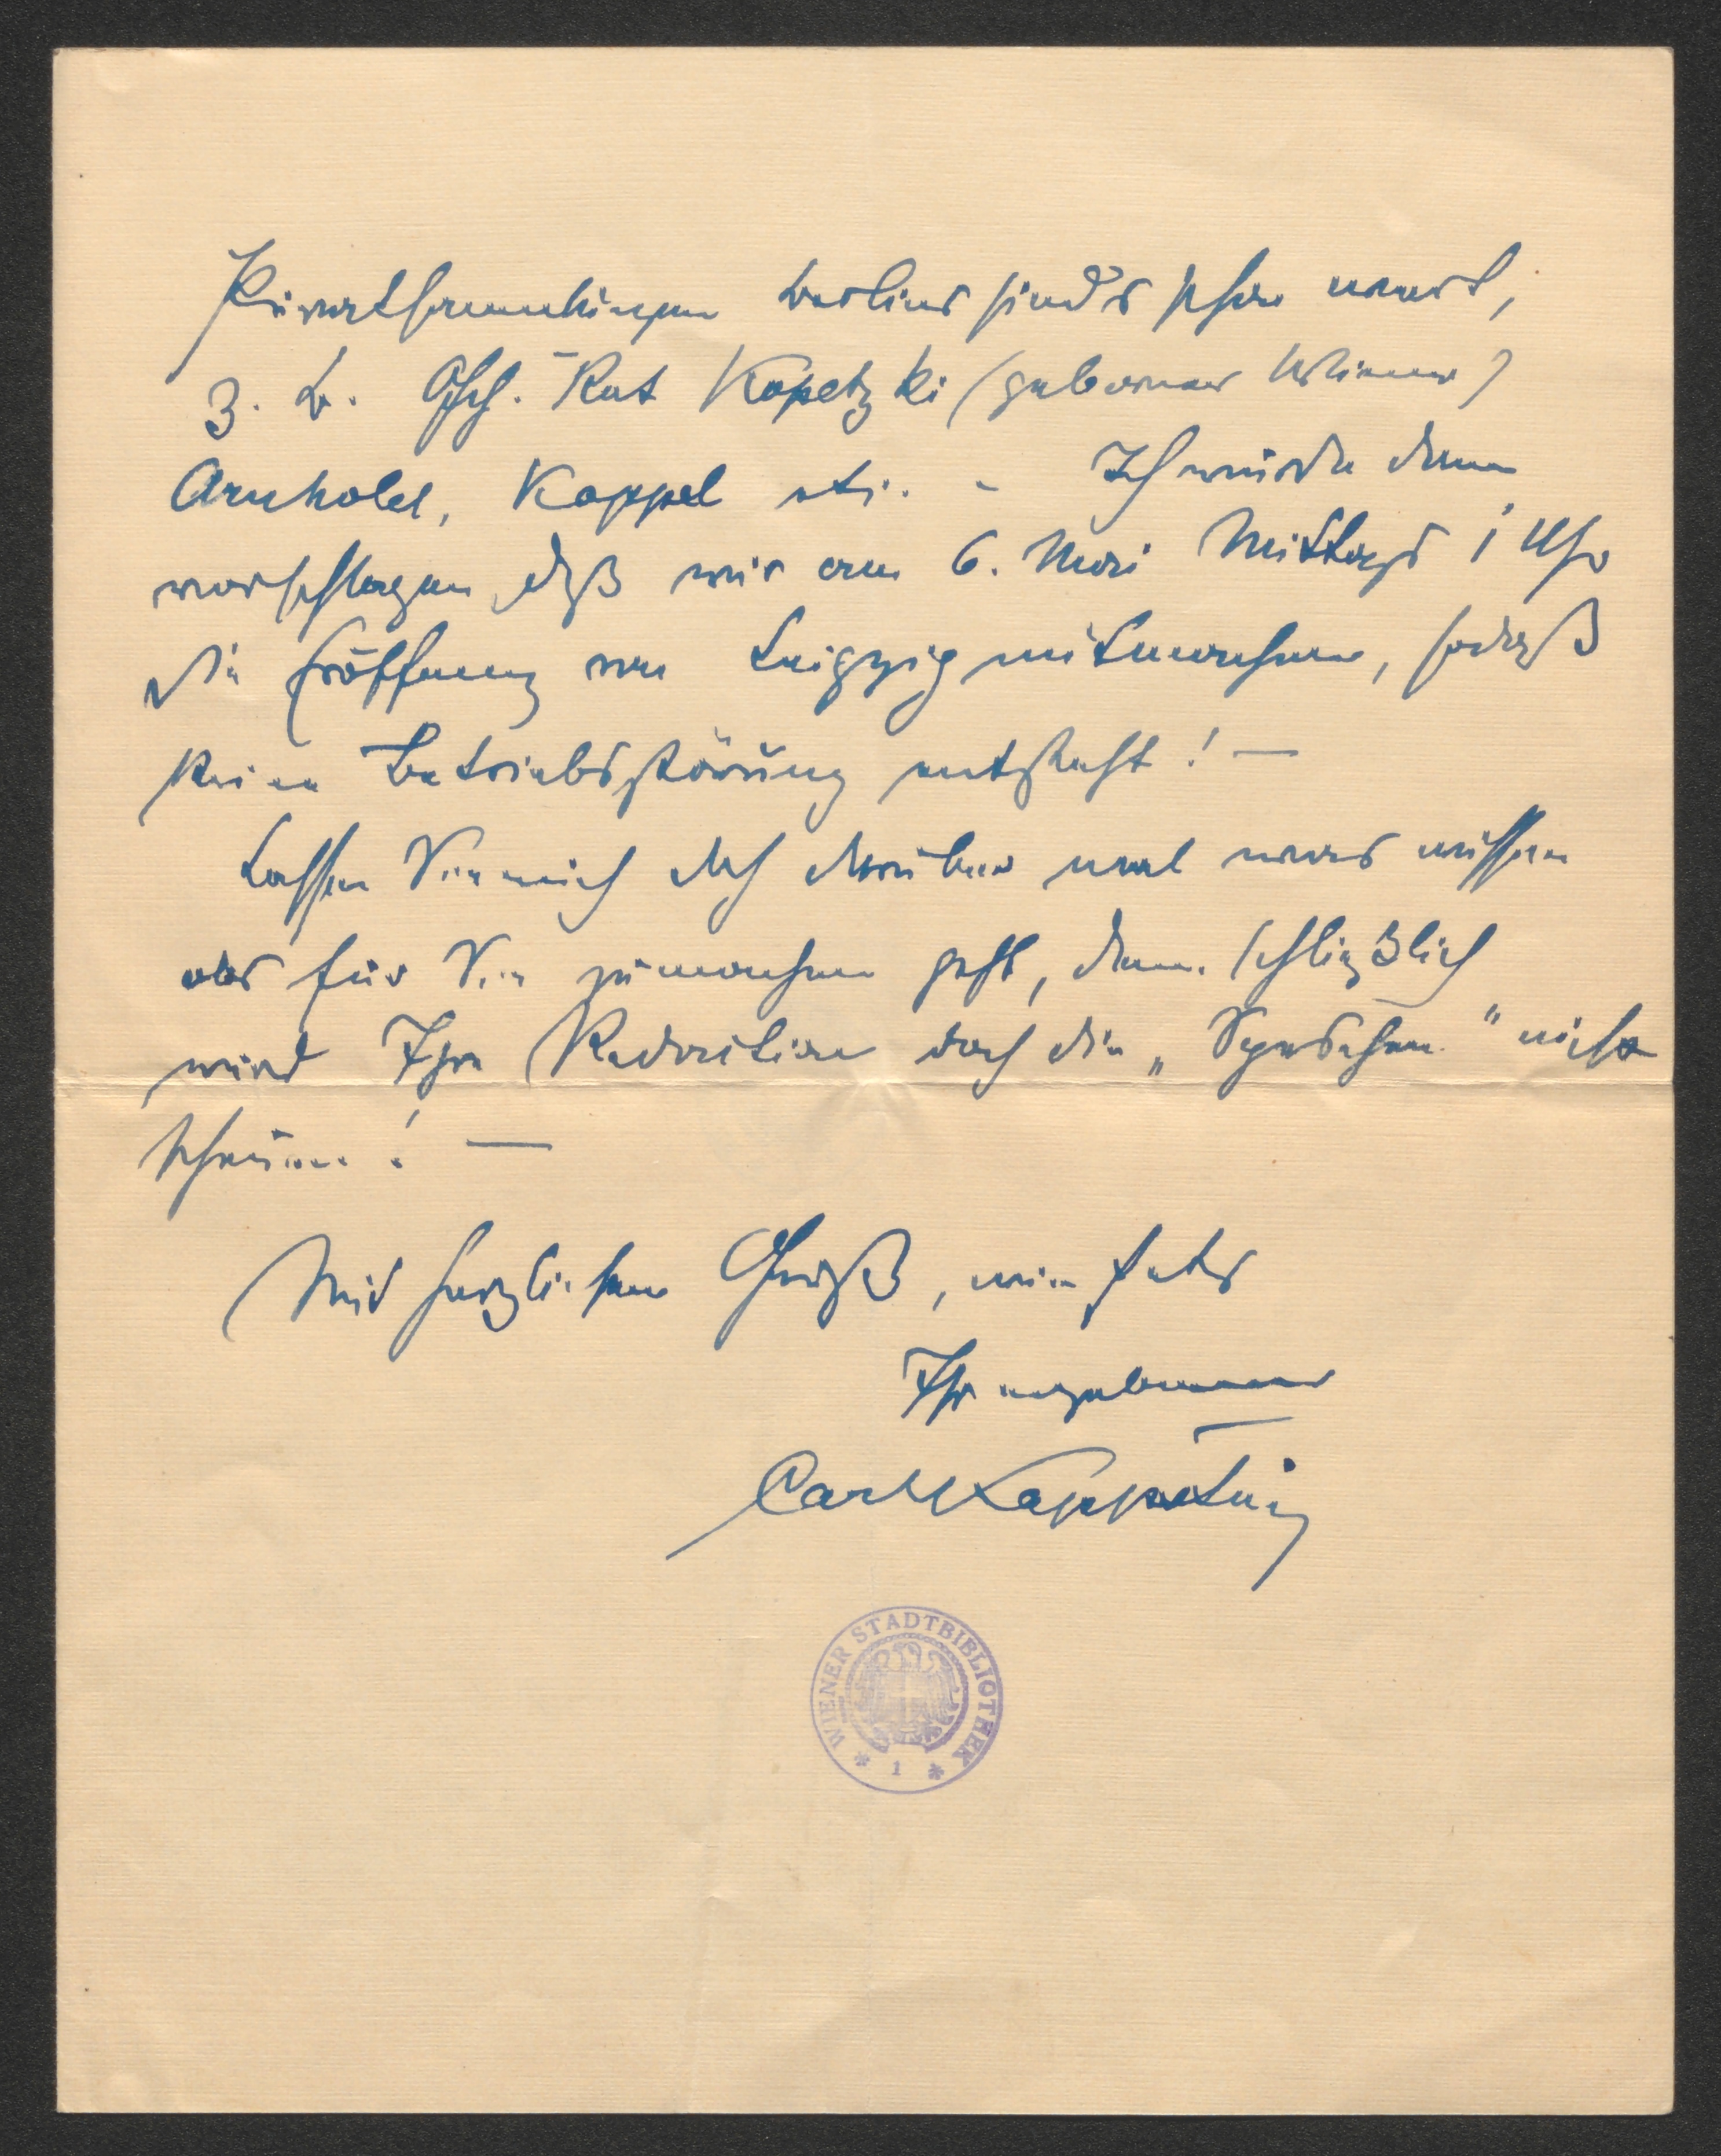 Privatsammlungen Berlins sind's schon wert,
z. B. Geh. Rat Kopetzki (geborener Wiener)
Arnhold, Koppel etc. – Ich würde dann
vorschlagen, daß wir am 6. Mai Mittags 1 Uhr
die Eröffnung von Leipzig mitmachen, sodaß
keine Betriebsstörung entsteht! —
Lassen Sie mich doch darüber mal was wissen
ob's für Sie zu machen geht, denn schließlich
wird Ihre Redaction doch die „Speschen" nicht
scheuen! —
Mit herzlichem Gruß, wie stets
Ihr ergebener
Carl
WIENER STADTBIBLIOTHEK
* 1 *